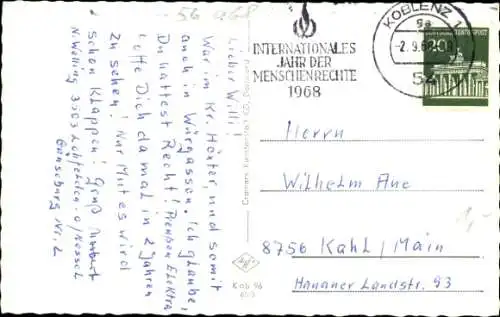 56 a68
Lieber Willi!
War im Kr. Höxter, und somit
auch in Würgassen. Ich glaube,
Du hattest Recht! Preußen Elektra
hoffe Dich da mal in 2 Jahren
zu sehen! Nur Mut es wird
schon klappen! Gruß
N. Welling 3503 Lohfelden-O/Kassel
Nr. 2
Cramers Kunstanstalt KG, Dortmund
Kob 96
INTERNATIONALES
JAHR DER
MENSCHENRECHTE
1968
KOBLENZ 1
-2.9.68
54
20
Herrn
Wilhelm Aue
8756 Kahl/Main
Hanauer Landstr. 93
1,-